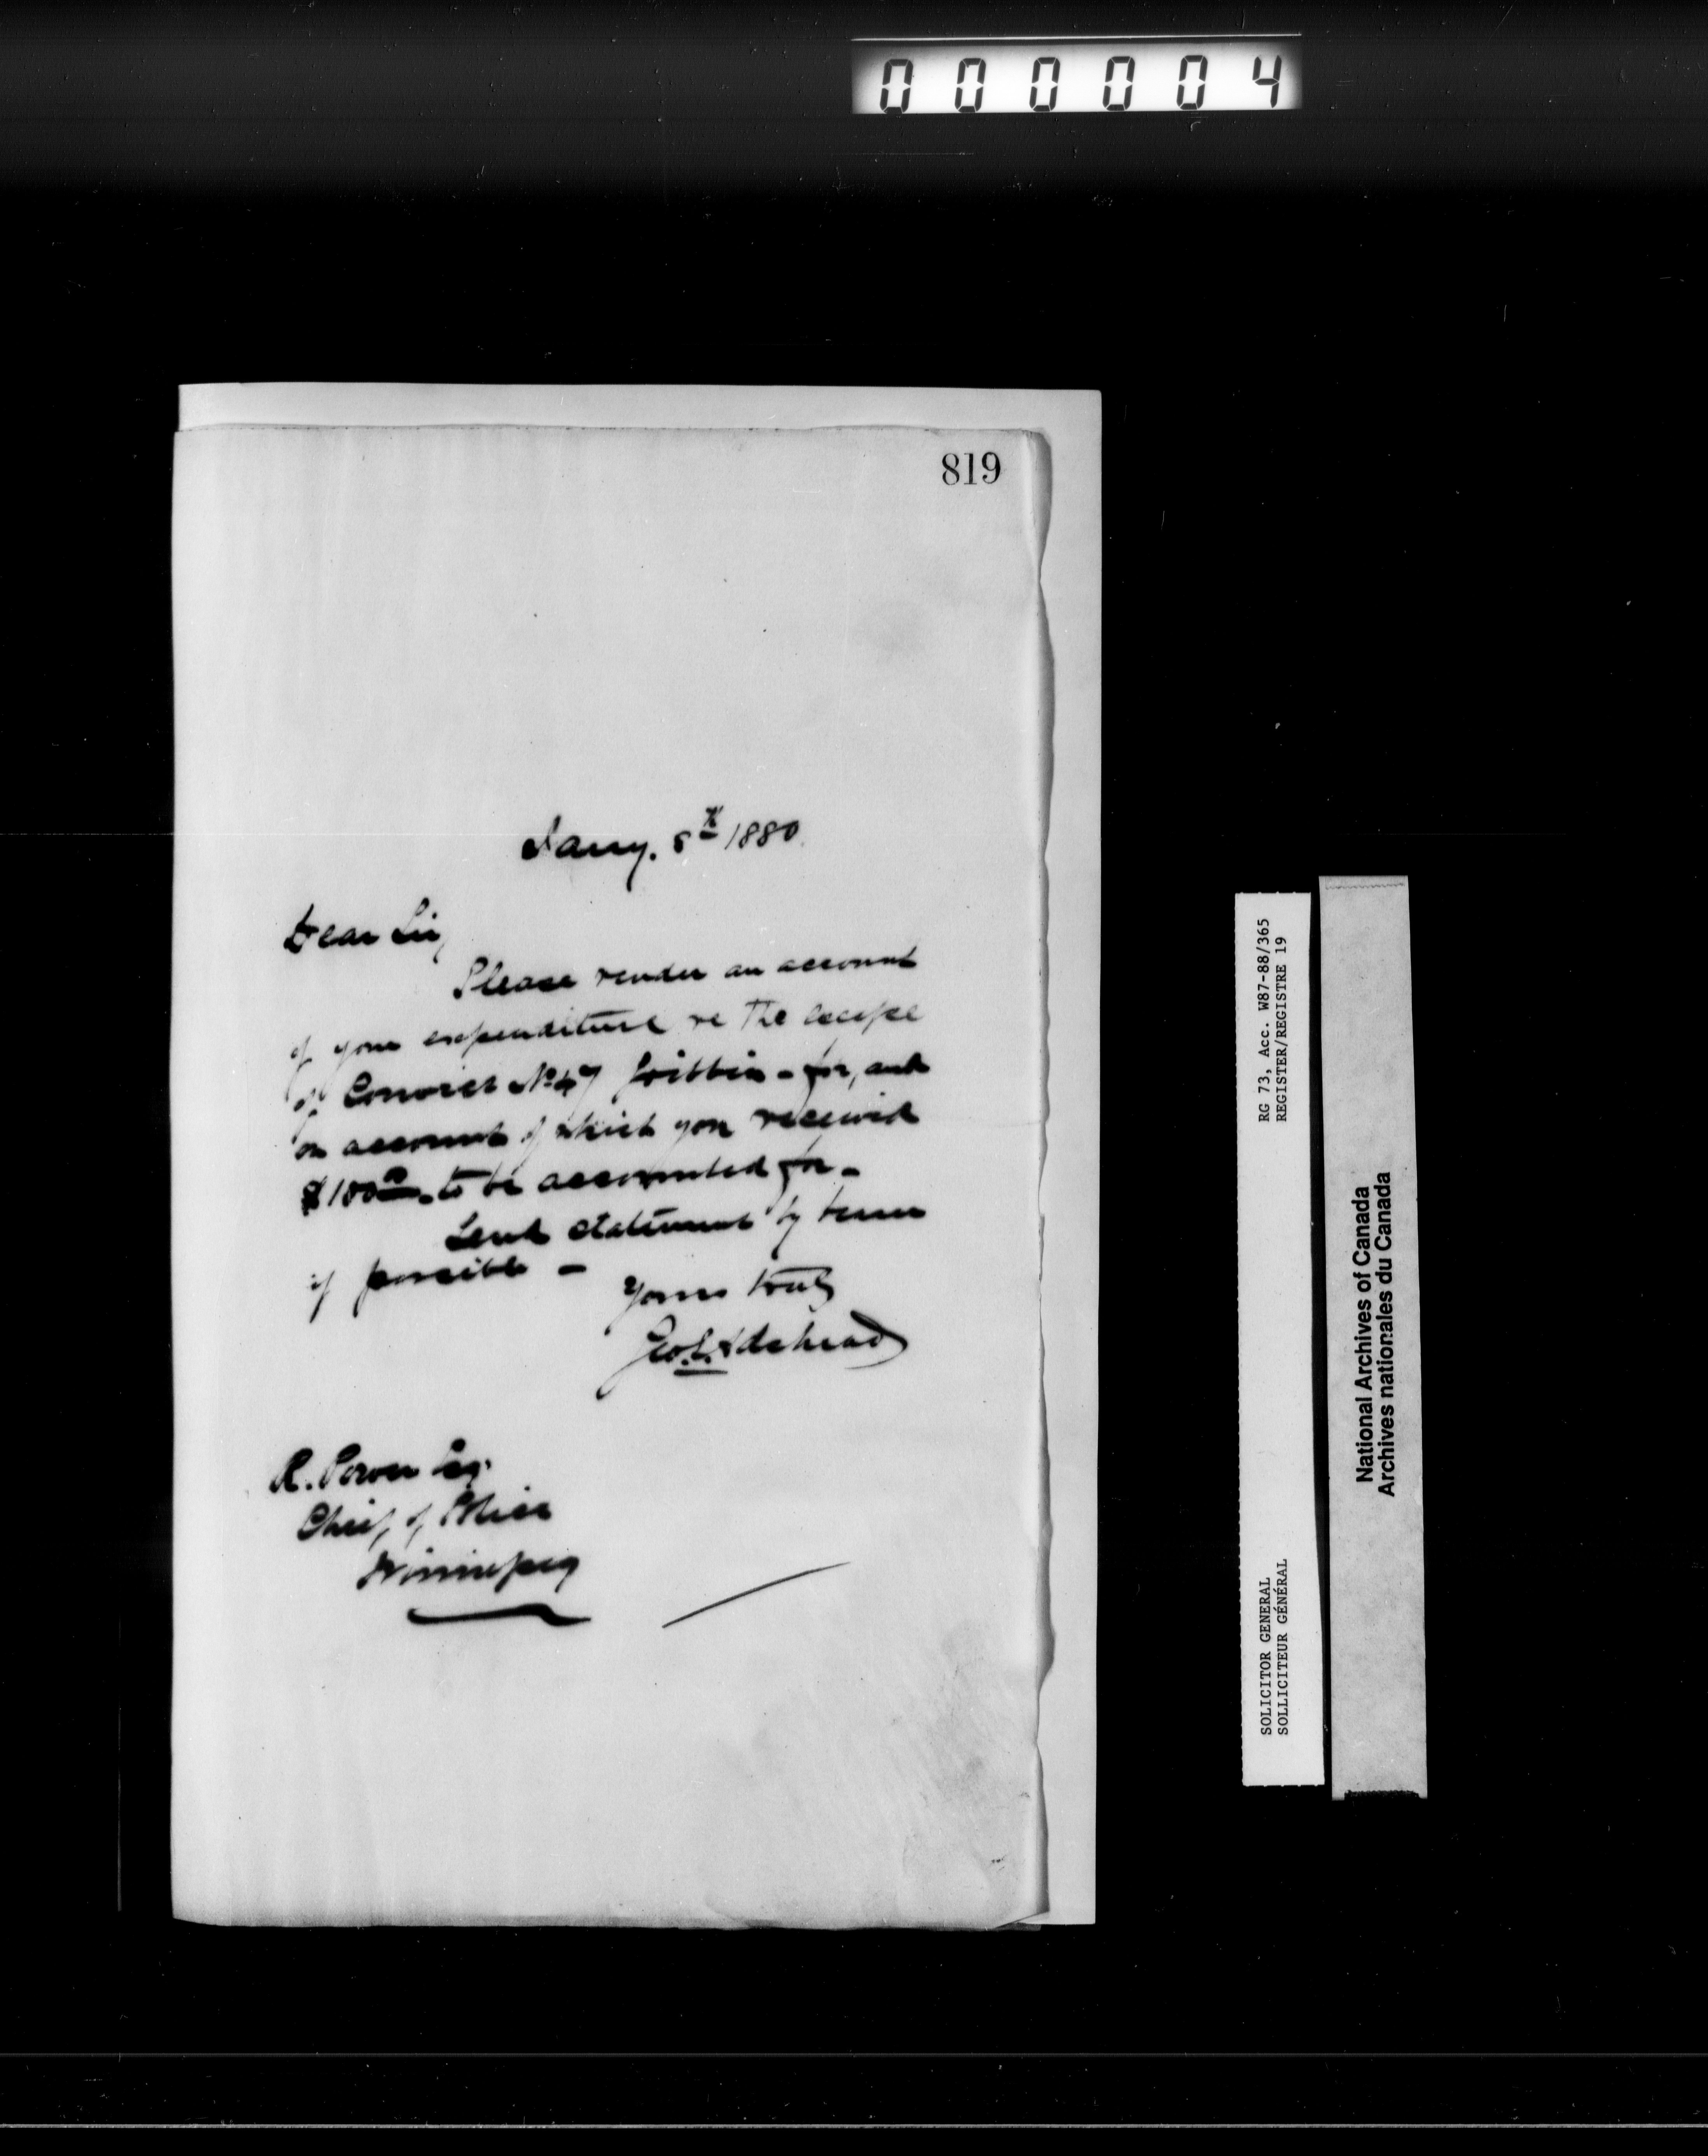 000004
819
Jany. 8th 1880.
Dear Sir,
Please render an account
of your expenditure re the escape
of Convict No 47 – for, and
on account of which you received
$100.00 to be accounted for –
Send statement by
if possible –
Yours truly
Geo. L.
R. Power Esq.
Chief of Police
Winnipeg
RG 73, Acc. W87-88/365
REGISTER/REGISTRE 19
SOLICITOR GENERAL
SOLLICITEUR GÉNÉRAL
National Archives of Canada
Archives nationales du Canada